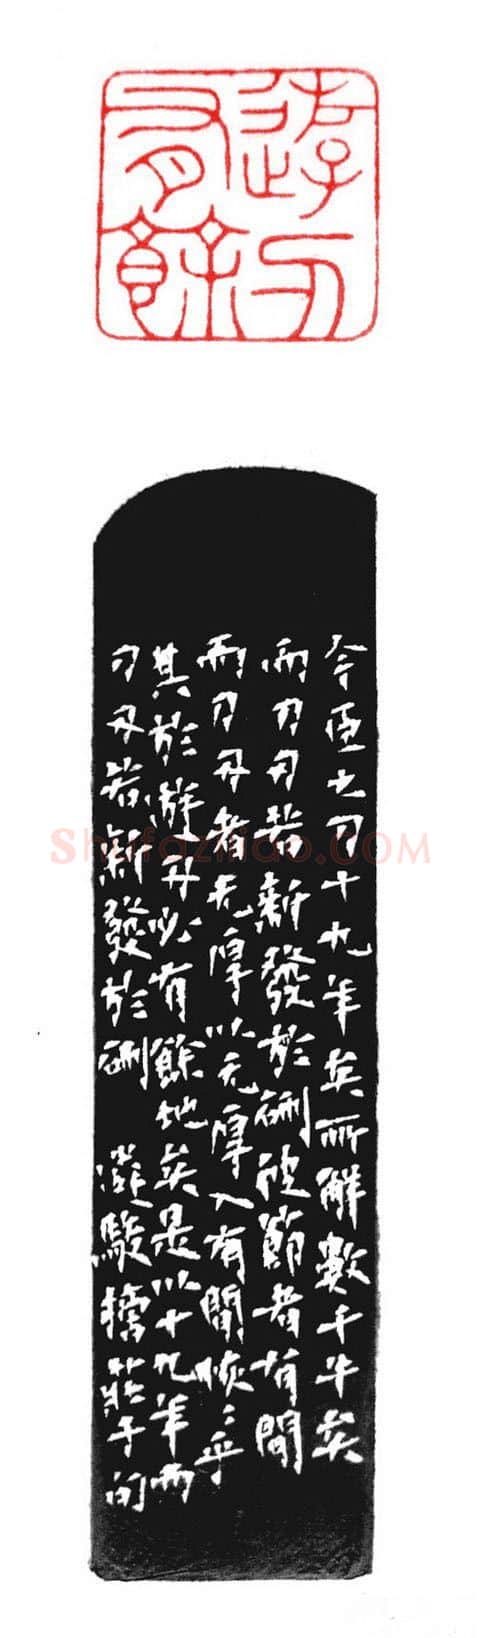 遊刃
有餘
今臣之刀十九年矣所解數千牛矣
而刀刃若新發於硎彼節者有間
而刀刃者无厚以无厚入有間恢〻乎
其於游刃必有餘地矣是以十九年而
刀刃若新發於硎 駿 莊子
Shufaziliao.COM